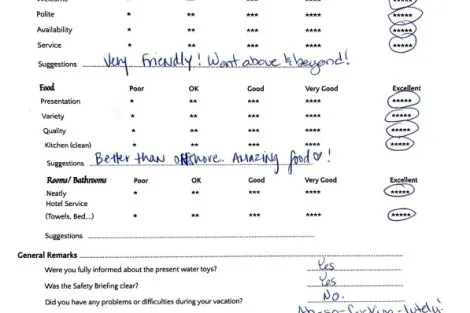 Welcome * ** *** **** *****
Polite * ** *** **** *****
Availability * ** *** **** *****
Service * ** *** **** *****
Suggestions Very Friendly! Went above & beyond!
Food Poor OK Good Very Good Excellent
Presentation * ** *** **** *****
Variety * ** *** **** *****
Quality * ** *** **** *****
Kitchen (clean) * ** *** **** *****
Suggestions Better than offshore. Amazing food !
Rooms/ Bathrooms Poor OK Good Very Good Excellent
Neatly * ** *** **** *****
Hotel Service
(Towels, Bed...) * ** *** **** *****
Suggestions
General Remarks
Were you fully informed about the present water toys? Yes
Was the Safety Briefing clear? Yes
Did you have any problems or difficulties during your vacation? No.
Ab-so-fucking-lutely!